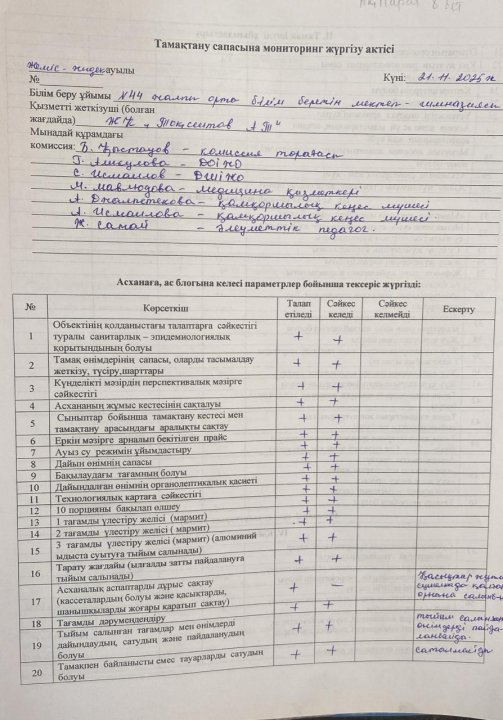 Тамақтану сапасына мониторинг жүргізу актісі
Жеміс-жидек ауылы
№ Күні: 21.11.2025ж
Білім беру ұйымы №44 жалпы орта білім беретін мектеп-гимназиясы
Қызметті жеткізуші (болған
жағдайда) ЖК "А.Т"
Мынадай құрамдағы
комиссия: Б. - комиссия төрағасы
Г. - ДОІЖО
С. Исмаилов - ДШІЖО
М. Мавлюдова - медицина қызметкері
А. - қамқоршылық кеңес мүшесі
А. Исмаилова - қамқоршылық кеңес мүшесі.
Ж. Самай - әлеуметтік педагог.
Асханаға, ас блогына келесі параметрлер бойынша тексеріс жүргізді:
№ Көрсеткіш Талап етіледі Сәйкес келеді Сәйкес келмейді Ескерту
1 Объектінің қолданыстағы талаптарға сәйкестігі
туралы санитарлық – эпидемиологиялық + +
қорытындының болуы
2 Тамақ өнімдерінің сапасы, оларды тасымалдау + +
жеткізу, түсіру,шарттары
3 Күнделікті мәзірдің перспективалық мәзірге + +
сәйкестігі
4 Асхананың жұмыс кестесінің сақталуы + +
5 Сыныптар бойынша тамақтану кестесі мен + +
тамақтану арасындағы аралықты сақтау
6 Еркін мәзірге арналып бекітілген прайс + +
7 Ауыз су режимін ұйымдастыру + +
8 Дайын өнімнің сапасы + +
9 Бақылаудағы тағамның болуы + +
10 Дайындалған өнімнің органолептикалық қасиеті + +
11 Технологиялық картаға сәйкестігі + +
12 10 порцияны бақылап өлшеу + +
13 1 тағамды үлестіру желісі (мармит) + +
14 2 тағамды үлестіру желісі ( мармит) + +
15 3 тағамды үлестіру желісі (мармит) (алюминий + +
ыдыста суытуға тыйым салынады)
16 Тарату жағдайы (ылғалды затты пайдалануға + +
тыйым салынады)
17 Асханалық аспаптарды дұрыс сақтау + -
(кассеталардың болуы және қасықтарды,
шанышқыларды жоғары қаратып сақтау) + +
18 Тағамды дәрумендендіру
19 Тыйым салынған тағамдар мен өнімдерді + + тыйым салынған
дайындаудың, сатудың және пайдаланудың өнімдерді пайда-
болуы ланбайды.
20 Тамақпен байланысты емес тауарларды сатудың + + сатылмайды
болуы